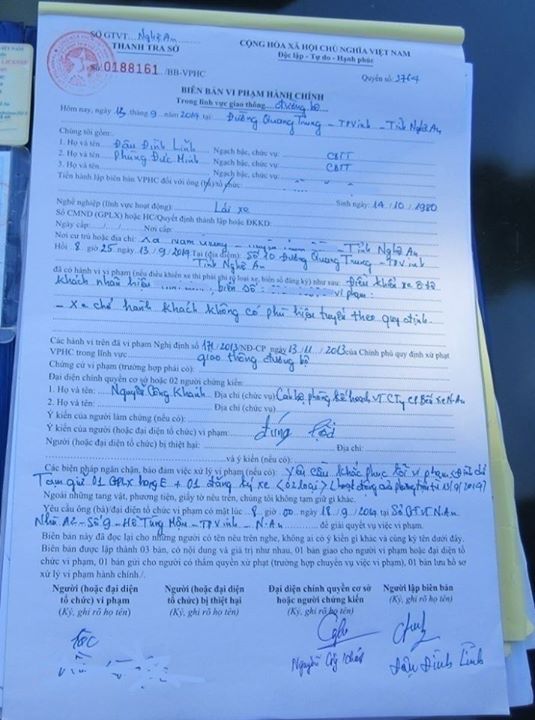 SỞ GTVT Nghệ An
THANH TRA SỞ
Số 0188161 /BB-VPHC
CỘNG HÒA XÃ HỘI CHỦ NGHĨA VIỆT NAM
Độc lập - Tự do - Hạnh phúc
Quyển số 3764
BIÊN BẢN VI PHẠM HÀNH CHÍNH
Trong lĩnh vực giao thông đường bộ
Hôm nay, ngày 13 tháng 9 năm 2014 tại Đường Quang Trung - TP Vinh - Tỉnh Nghệ An
Chúng tôi gồm:
1. Họ và tên Đậu Đình Lĩnh Ngạch bậc, chức vụ:
2. Họ và tên Phùng Đức Minh Ngạch bậc, chức vụ:
3. Họ và tên Ngạch bậc, chức vụ:
Tiến hành lập biên bản VPHC đối với ông (bà)/tổ chức:
Nghề nghiệp (lĩnh vực hoạt động) Lái xe Sinh ngày 14/10/1980
Số CMND (GPLX) hoặc HC/Quyết định thành lập hoặc ĐKKD:
Ngày cấp: Nơi cấp:
Nơi cư trú hoặc địa chỉ: Xã Nam - Tỉnh Nghệ An
Hồi 8 giờ 25 ngày 13/9/2014 Tại (địa điểm): Số 20 Đường Quang Trung - TP Vinh
Tỉnh Nghệ An
đã có hành vi vi phạm (nếu điều khiển xe thì phải ghi rõ loại xe, biển số đăng ký) như sau: Điều khiển xe ô tô
khách nhãn hiệu biển số: vi phạm:
- Xe chở hành khách không có phù hiệu tuyến theo quy định.
Các hành vi trên đã vi phạm Nghị định số 171/2013/NĐ-CP ngày 13/11/2013 của Chính phủ quy định xử phạt
VPHC trong lĩnh vực giao thông đường bộ
Chứng cứ vi phạm (trường hợp phải có):
Đại diện chính quyền cơ sở hoặc 02 người chứng kiến:
1. Họ và tên: Nguyễn Công Khanh Địa chỉ (chức vụ) Cán bộ phòng kế hoạch VT CTy CP Bến xe N.An
2. Họ và tên: Địa chỉ (chức vụ)
Ý kiến của người làm chứng (nếu có):
Ý kiến của người (hoặc đại diện tổ chức) vi phạm: đúng lỗi
Người (hoặc đại diện tổ chức) bị thiệt hại: Địa chỉ:
và ý kiến (nếu có):
Các biện pháp ngăn chặn, bảo đảm việc xử lý vi phạm (nếu có): Yêu cầu khắc phục lỗi vi phạm
Tạm giữ 01 GPLX hạng E + 01 đăng ký xe
Ngoài những tang vật, phương tiện, giấy tờ nêu trên, chúng tôi không tạm giữ gì khác.
Yêu cầu ông (bà)/đại diện tổ chức vi phạm có mặt lúc 8 giờ 00 ngày 18/9/2014 tại Sở GTVT N.An
Nhà A - Số 9 - Hồ Tùng Mậu - TP Vinh - N.An để giải quyết vụ việc vi phạm.
Biên bản này đã đọc lại cho những người có tên nêu trên nghe, không ai có ý kiến gì khác và cùng ký tên dưới đây.
Biên bản được lập thành 03 bản, có nội dung và giá trị như nhau, 01 bản giao cho người vi phạm hoặc đại diện
tổ chức vi phạm, 01 bản gửi cho người có thẩm quyền xử phạt (trường hợp chuyển vụ việc vi phạm), 01 bản lưu hồ sơ
xử lý vi phạm hành chính./.
Người (hoặc đại diện tổ chức) vi phạm
(Ký, ghi rõ họ tên)
Người (hoặc đại diện tổ chức) bị thiệt hại
(Ký, ghi rõ họ tên)
Đại diện chính quyền cơ sở hoặc người chứng kiến
(Ký, ghi rõ họ tên)
Người lập biên bản
(Ký, ghi rõ họ tên)
Đậu Đình Lĩnh